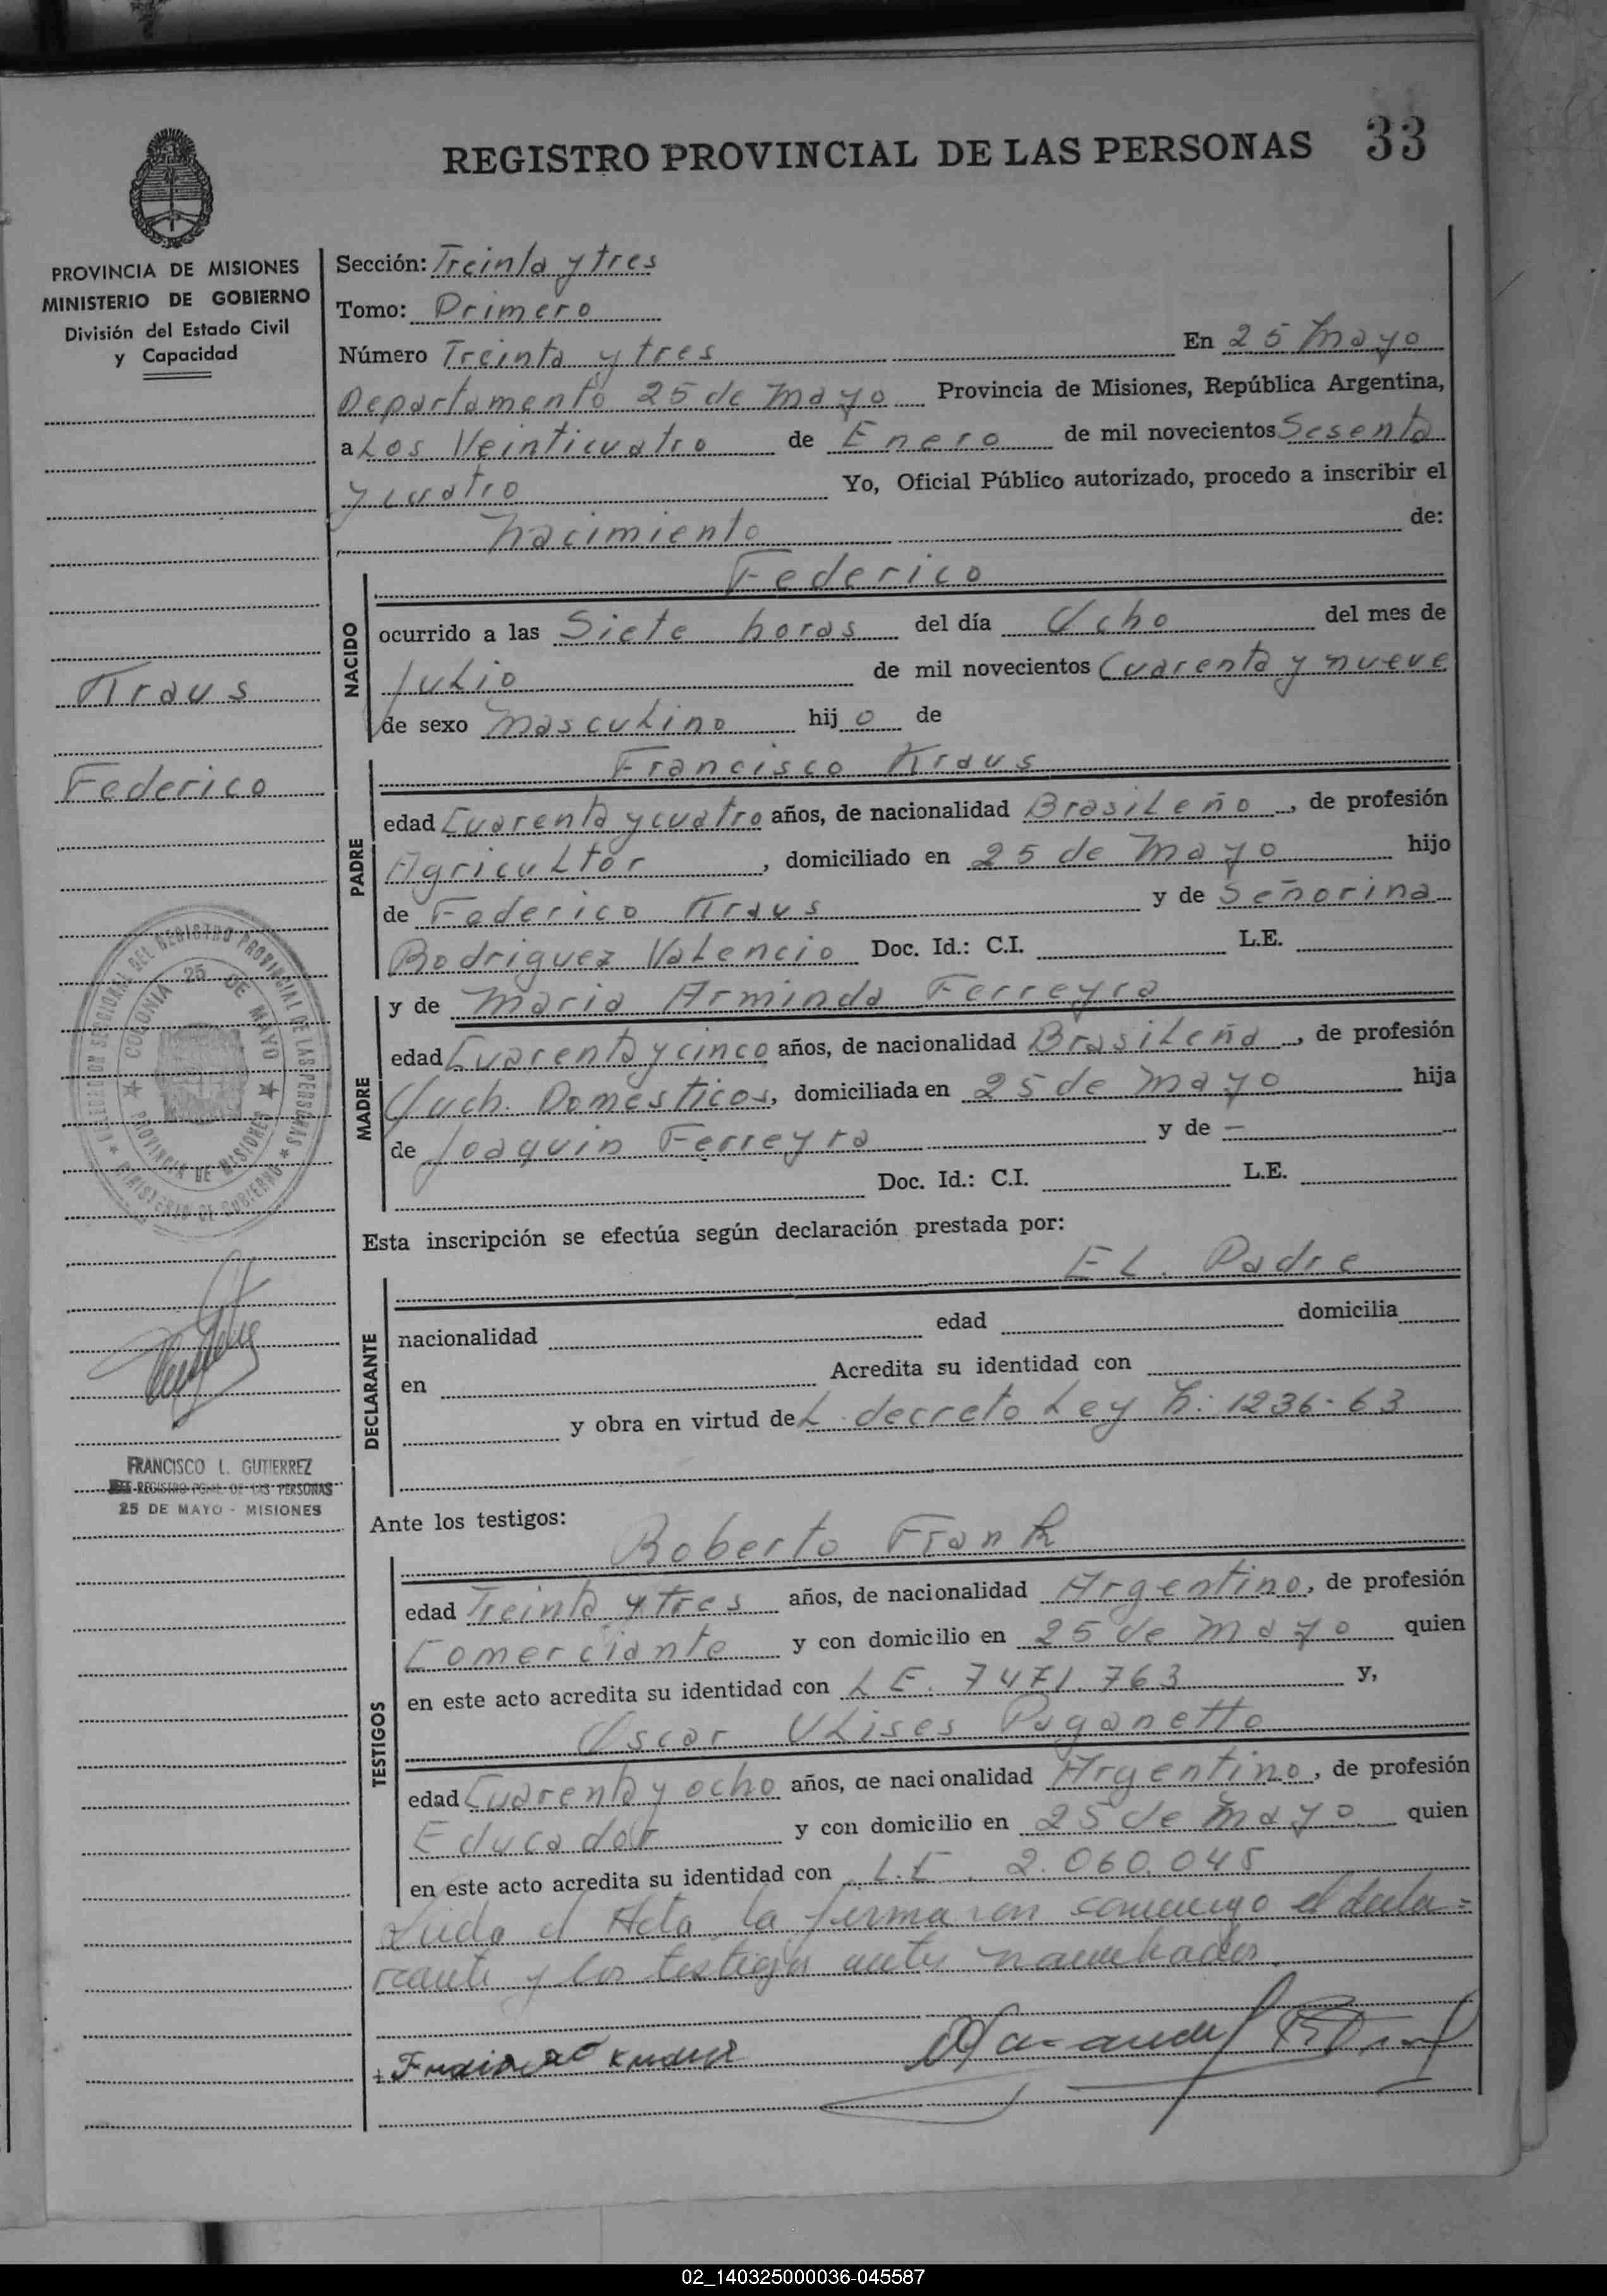 REGISTRO PROVINCIAL DE LAS PERSONAS 33
PROVINCIA DE MISIONES
MINISTERIO DE GOBIERNO
División del Estado Civil
y Capacidad
Kraus
Federico
DELEGACION SECCIONAL DEL REGISTRO PROVINCIAL DE LAS PERSONAS
MINISTERIO DE GOBIERNO
COLONIA 25 DE MAYO
PROVINCIA DE MISIONES
FRANCISCO L. GUTIERREZ
JEFE REGISTRO PCIAL DE LAS PERSONAS
25 DE MAYO - MISIONES
Sección: Treinta y tres
Tomo: Primero
Número Treinta y tres En 25 Mayo
Departamento 25 de Mayo Provincia de Misiones, República Argentina,
a Los Veinticuatro de Enero de mil novecientos Sesenta
y cuatro Yo, Oficial Público autorizado, procedo a inscribir el
nacimiento de:
NACIDO
Federico
ocurrido a las Siete horas del día Ocho del mes de
Julio de mil novecientos Cuarenta y nueve
de sexo Masculino hijo de
PADRE
Francisco Kraus
edad Cuarenta y cuatro años, de nacionalidad Brasileño, de profesión
Agricultor, domiciliado en 25 de Mayo hijo
de Federico Kraus y de Señorina
Rodriguez Valencio Doc. Id.: C.I. L.E.
MADRE
y de Maria Arminda Ferreyra
edad Cuarenta y cinco años, de nacionalidad Brasileña, de profesión
Quch. Domesticos, domiciliada en 25 de Mayo hija
de Joaquin Ferreyra y de —
Doc. Id.: C.I. L.E.
Esta inscripción se efectúa según declaración prestada por:
DECLARANTE
EL. Padre
nacionalidad edad domicilia
en Acredita su identidad con
y obra en virtud de L. decreto Ley N: 1236-63
Ante los testigos:
TESTIGOS
Roberto Frank
edad Treinta y tres años, de nacionalidad Argentino, de profesión
Comerciante y con domicilio en 25 de Mayo quien
en este acto acredita su identidad con L E. 7471.763 y,
Oscar Ulises Paganetto
edad Cuarenta y ocho años, de nacionalidad Argentino, de profesión
Educador y con domicilio en 25 de Mayo quien
en este acto acredita su identidad con L.E. 2.060.045
Leida el Acta la firmaron conmigo el decla=
rante y los testigos antes nombrados.
02_140325000036-045587